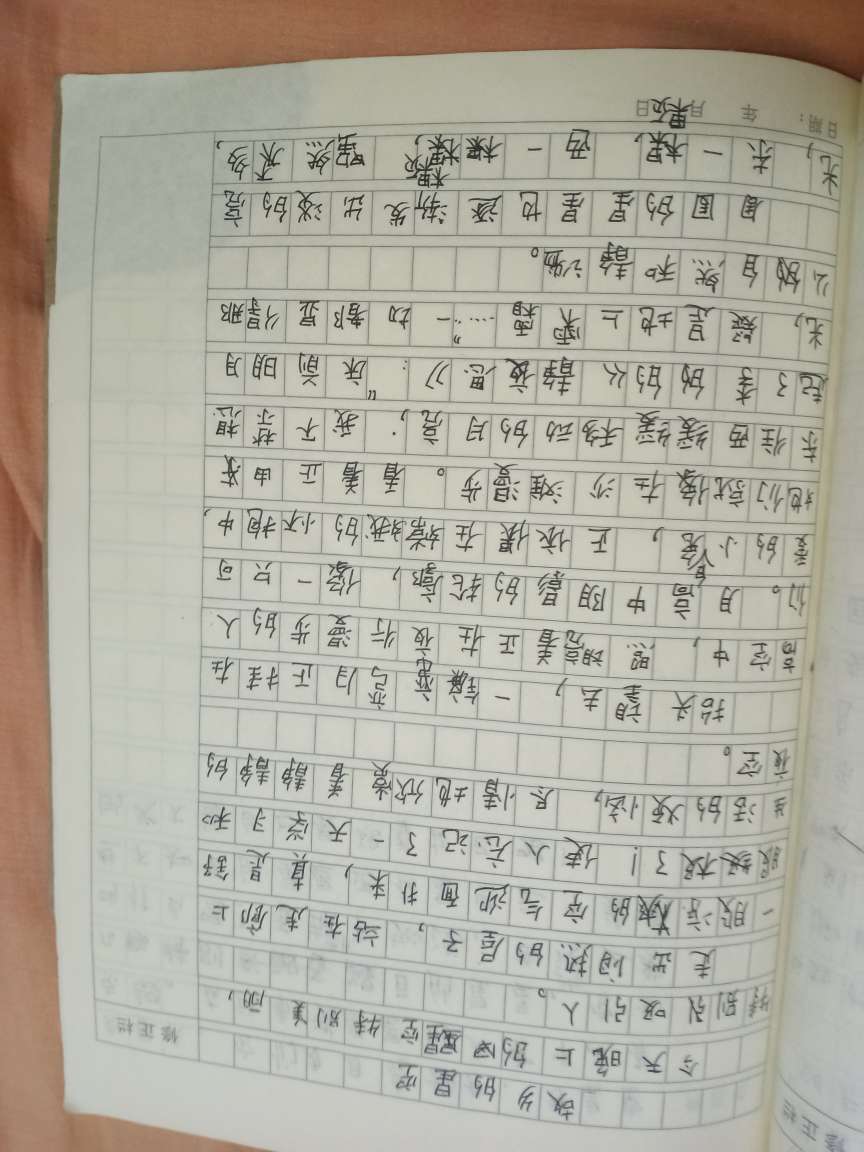 修正栏
故乡的星空
今天晚上的星空特别美丽,
特别引吸引人。
走出闷热的屋子,站在走廊上
一股凉爽的空气迎面扑来,真是舒
服极极了!使人忘记了一天学习和
生活的烦恼,尽情地欣赏着静静的
夜空。
抬头望去,一轮弯弯月正挂在
高空中,照亮着正在夜行漫步的人
们。月亮中阴影的轮廓,像一只可
爱的小白兔,正依偎在嫦娥的怀抱中,
他们就像在沙滩漫步。看着正由东
东往西缓缓移动的月亮,我不禁想
起了李白的《静夜思》:“床前明月
光,疑是地上霜……”一切都显得那
么的自然和静谧。
周围的星星也逐渐发出淡的亮
光,东一棵,西一棵,虽然不多,
日期: 年 月 日